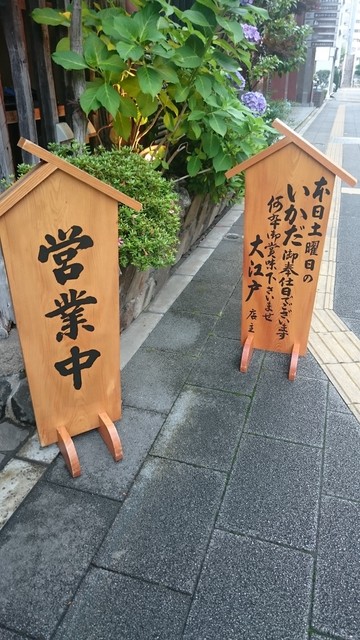 営業中
本日土曜日の
いかだ御奉仕日でございます
何卒御賞味下さいませ
大江戸 店主